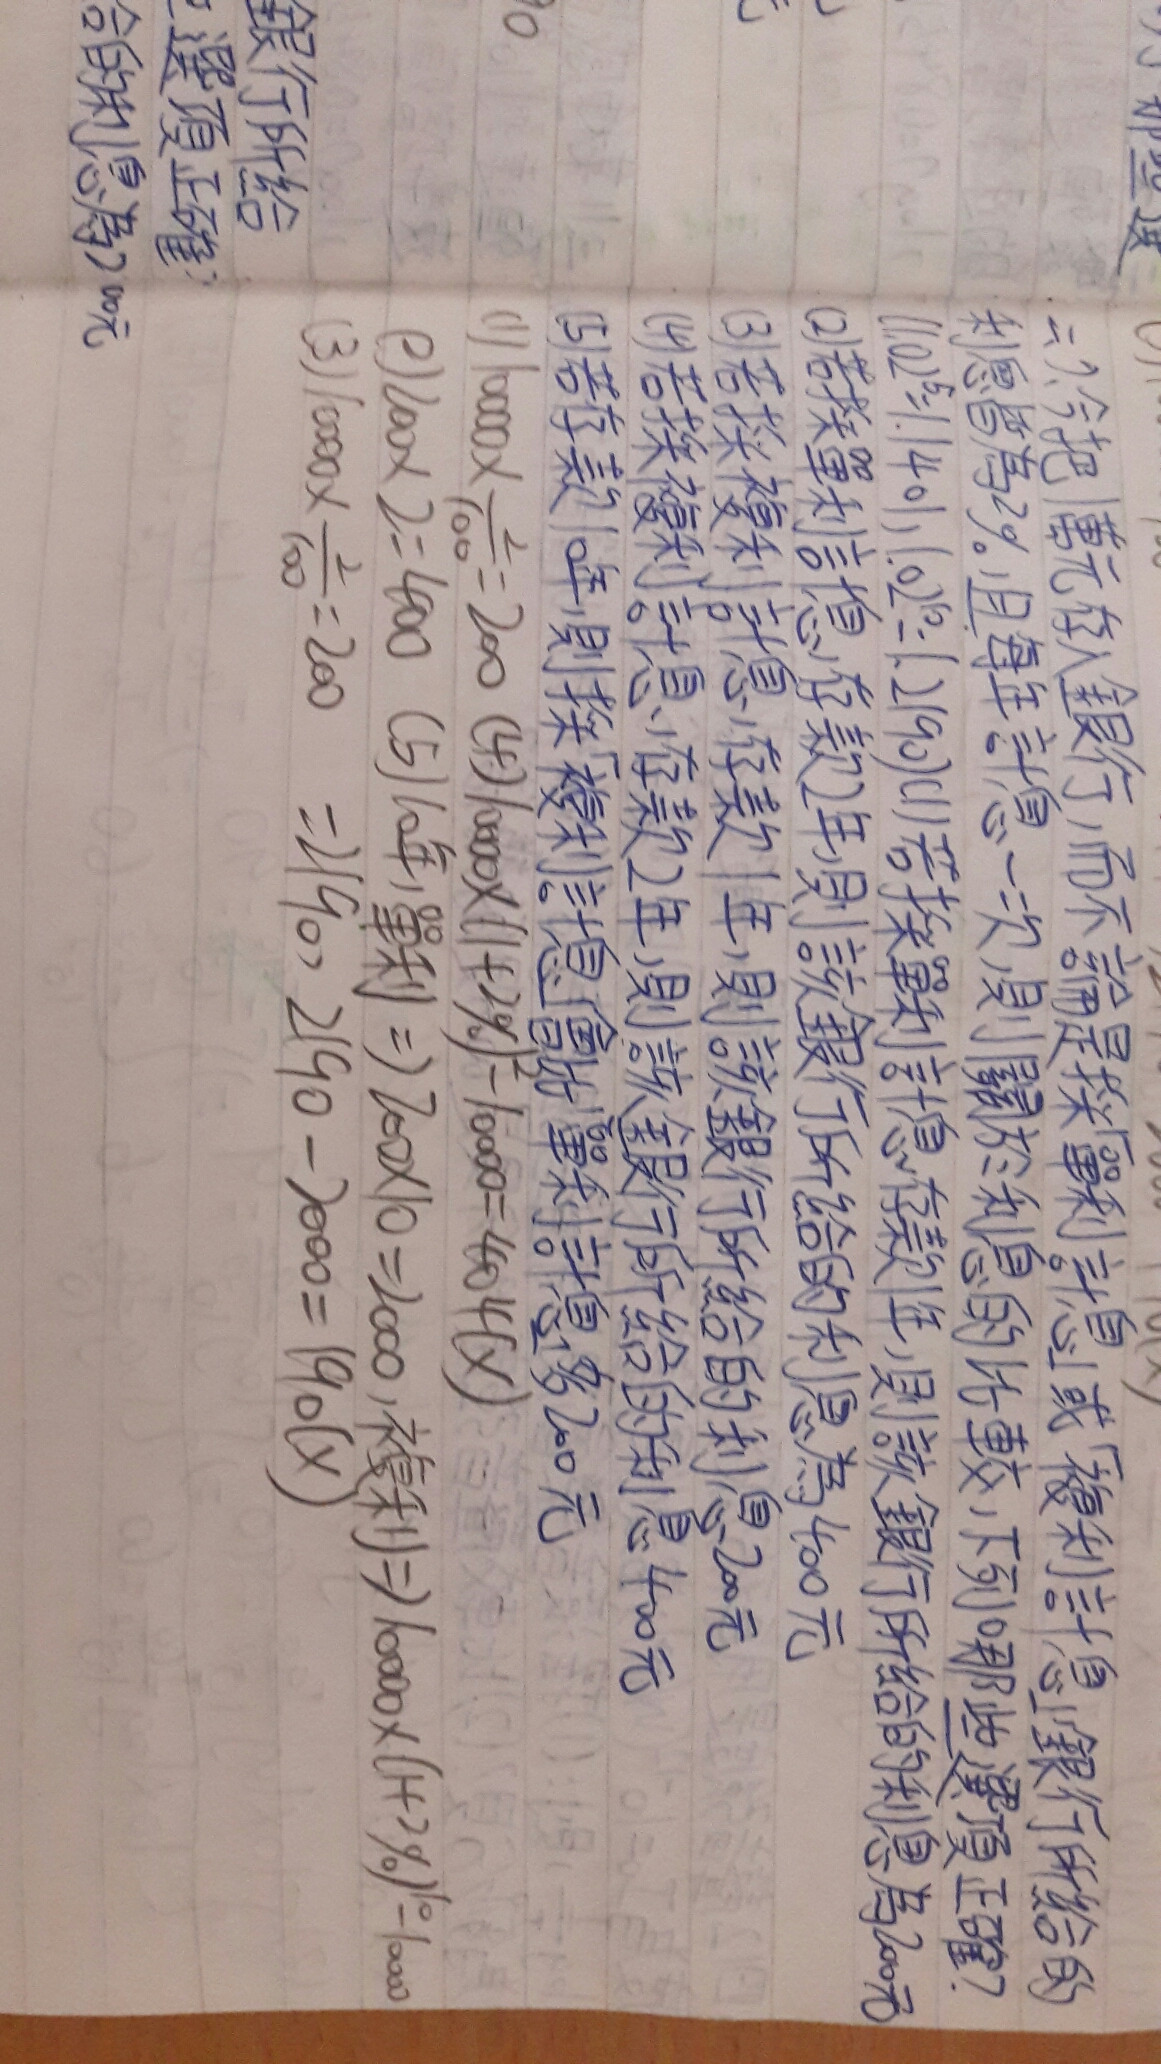 二、今把1萬元存入銀行,而不論是採「單利計息」或「複利計息」銀行所給的
利息皆為2%,且每年計息一次,則關於利息的比較,下列哪些選項正確?
(1.02⁵≒1.1401, 1.02¹⁰≒1.2190)(1)若採單利計息、存款1年,則該銀行所給的利息為200元
(2)若採單利計息、存款2年,則該銀行所給的利息為400元
(3)若採複利計息、存款1年,則該銀行所給的利息200元
(4)若採複利計息、存款2年,則該銀行所給的利息400元
(5)若存款10年,則採「複利計息」會比「單利計息」多200元
(1)10000×2/100=200 (4)10000×(1+2%)²-10000=404(×)
(2)200×2=400 (5)10年,單利⇒200×10=2000,複利⇒10000×(1+2%)¹⁰-10000
(3)10000×2/100=200 =2190, 2190-2000=190(×)
銀行所給
選項正確?
給的利息為200元